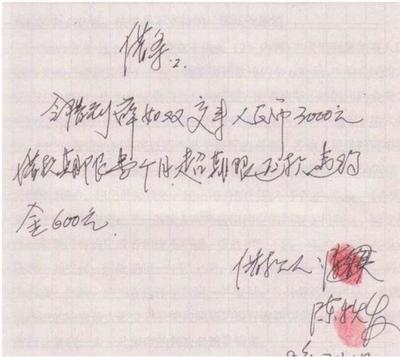 借条
今借到薛如双文来人民币3000元
借款期限个月.超期限还款违约
金600元.
借款人
陈